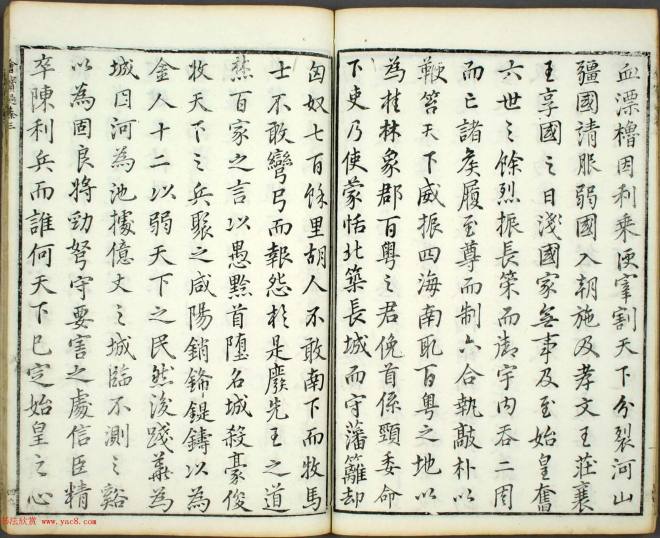 血漂櫓因利乘便宰割天下分裂河山
彊國請服弱國入朝施及孝文王莊襄
王享國之日淺國家無事及至始皇奮
六世之餘烈振長策而御宇內吞二周
而亡諸矦履至尊而制六合執敲朴以
鞭笞天下威振四海南取百粵之地以
為桂林象郡百粵之君俛首係頸委命
下吏乃使蒙恬北築長城而守藩籬却
匈奴七百餘里胡人不敢南下而牧馬
士不敢彎弓而報怨於是廢先王之道
焚百家之言以愚黔首墮名城殺豪俊
收天下之兵聚之咸陽銷鋒鍉鑄以為
金人十二以弱天下之民然後踐華為
城因河為池據億丈之城臨不測之谿
以為固良將勁弩守要害之處信臣精
卒陳利兵而誰何天下已定始皇之心
书法欣赏 www.yac8.com